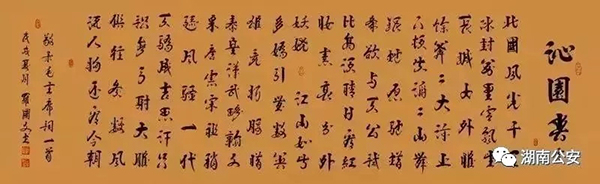 沁園春
北國風光千里
冰封萬里雪飄望
長城內外惟
餘莽莽大河上
下頓失滔滔山舞
銀蛇原馳蠟
象欲與天公試
比高須晴日看紅
妝素裹分外
妖嬈 江山如此
多嬌引無數英
雄競折腰惜
秦皇漢武略輸文
采唐宗宋祖稍
遜風騷一代
天驕成吉思汗只
識彎弓射大雕
俱往矣數風
流人物還看今朝
毛主席詞一首
湖南公安